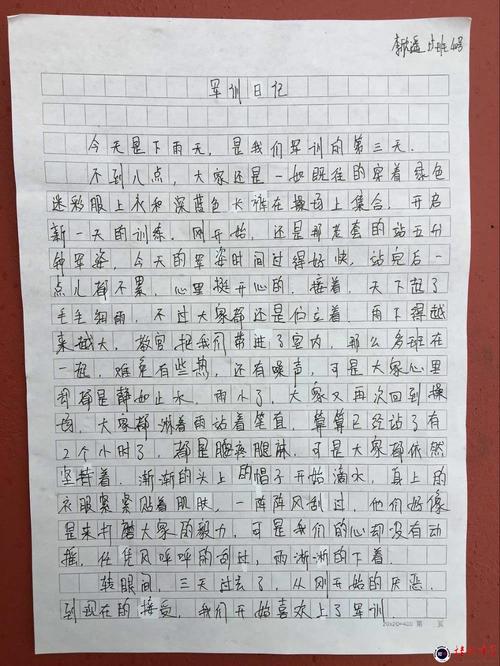 李欣遥 1班 4号
军训日记
今天是下雨天，是我们军训的第三天。
不到八点，大家还是一如既往的穿着绿色
迷彩服上衣和深蓝色长裤在操场上集合，开启
新一天的训练。刚开始，还是那老套的站五分
钟军姿，今天的军姿时间过得好快，站完后一
点儿都不累，心里挺开心的，接着，天下起了
毛毛细雨，不过大家都还是伫立着，雨下得越
来越大，教官把我们带进了室内，那么多班在
一起，难免有些热，还有噪声，可是大家心里
却都是静如止水，雨小了，大家又再次回到操
场，大家都淋着雨站着笔直，算算已经站了有
2个小时了，都是腰疼腿麻，可是大家都依然
坚持着，渐渐的头上的帽子开始滴水，身上的
衣服紧紧贴着肌肤，一阵阵风刮过，他们好像
是来打磨大家的毅力，可是我们的心却没有动
摇，任凭风呼呼的刮过，雨淅淅的下着。
转眼间，三天过去了，从刚开始的厌恶，
到现在的接受，我们开始喜欢上了军训
20×20=400 第 页